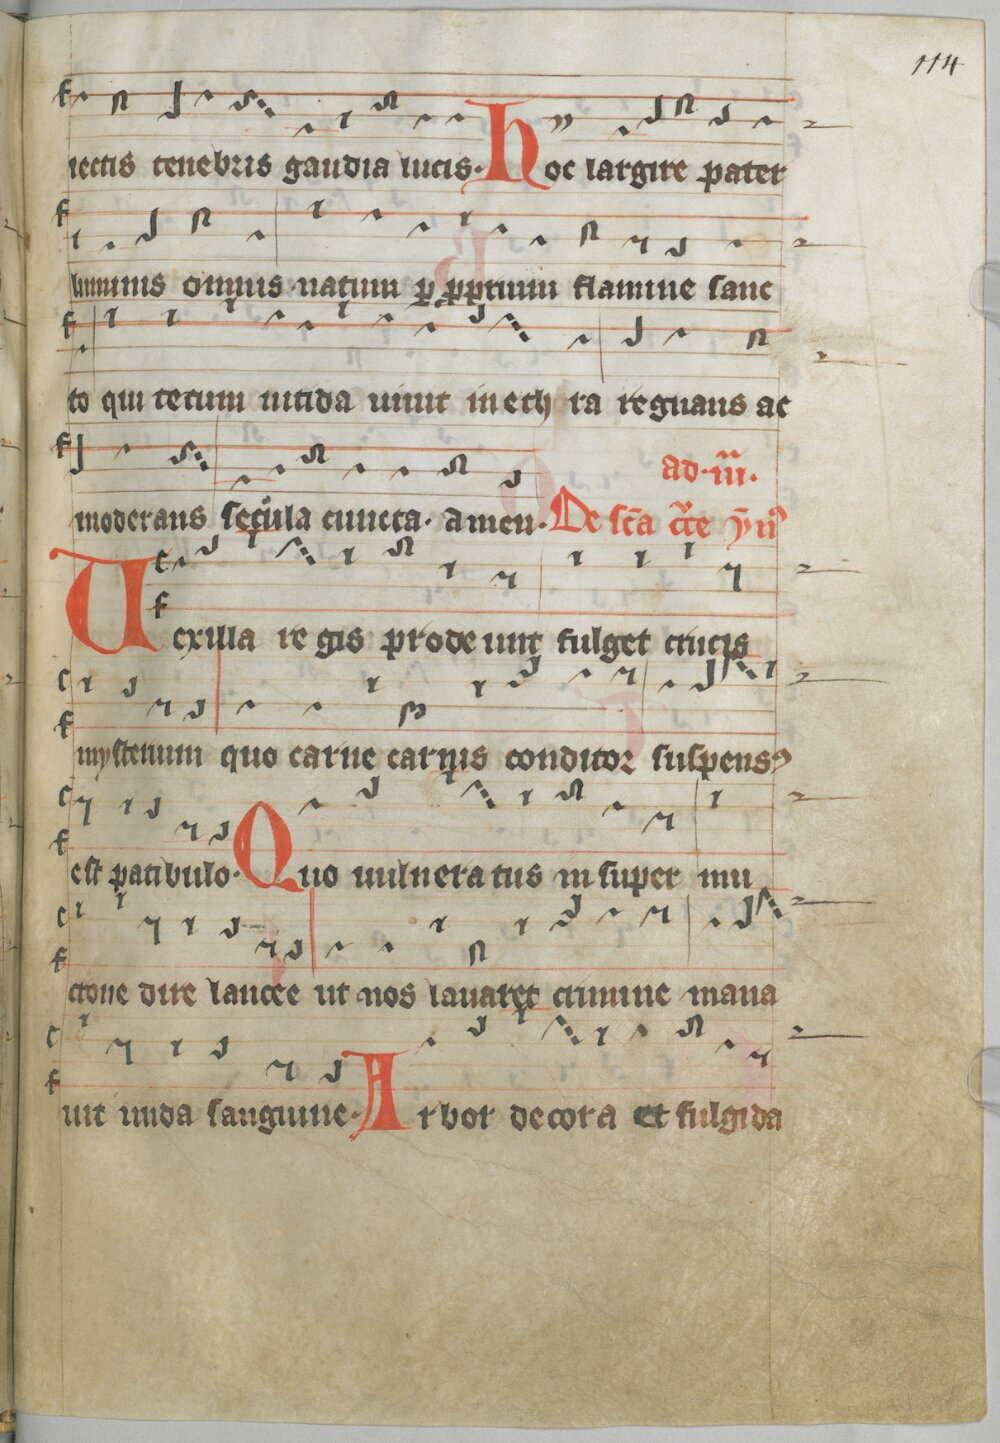 114
iectis tenebris gaudia lucis. Hoc largire pater
luminis omnis natum p̱ pprium flamine sanc
to qui tecum nitida uiuit in ethra regnans ac
ad. iii.
moderans secula cuncta. amen. De sc̄a cͬce ẏm̄
Vexilla regis prodeunt fulget crucis
mysterium quo carne carnis conditor suspensꝰ
est patibulo. Quo uulneratus insuper mu
crone dire lancee ut nos lauaret crimine mana
uit unda sanguine. Arbor decora et fulgida